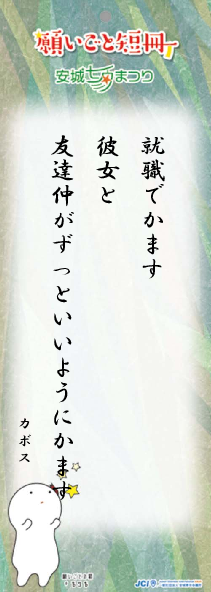 願いごと短冊
安城七夕まつり
就職でかます
彼女と
友達仲がずっといいようにかます
カボス
JCI